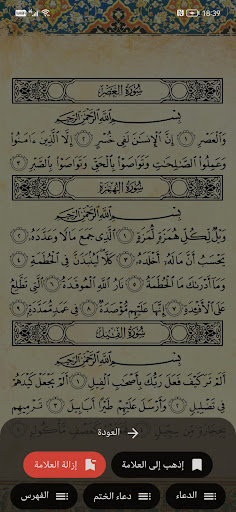 18:39
سُورَةُ العَصْرِ
بِسْمِ اللَّهِ الرَّحْمَٰنِ الرَّحِيمِ
وَالْعَصْرِ ١ إِنَّ الْإِنسَٰنَ لَفِى خُسْرٍ ٢ إِلَّا الَّذِينَ ءَامَنُوا
وَعَمِلُوا الصَّٰلِحَٰتِ وَتَوَاصَوْا بِالْحَقِّ وَتَوَاصَوْا بِالصَّبْرِ ٣
سُورَةُ الهُمَزَةِ
بِسْمِ اللَّهِ الرَّحْمَٰنِ الرَّحِيمِ
وَيْلٌ لِّكُلِّ هُمَزَةٍ لُّمَزَةٍ ١ الَّذِى جَمَعَ مَالًا وَعَدَّدَهُ ٢
يَحْسَبُ أَنَّ مَالَهُ أَخْلَدَهُ ٣ كَلَّا لَيُنبَذَنَّ فِى الْحُطَمَةِ ٤
وَمَا أَدْرَىٰكَ مَا الْحُطَمَةُ ٥ نَارُ اللَّهِ الْمُوقَدَةُ ٦ الَّتِى تَطَّلِعُ
عَلَى الْأَفْـِٔدَةِ ٧ إِنَّهَا عَلَيْهِم مُّؤْصَدَةٌ ٨ فِى عَمَدٍ مُّمَدَّدَةٍ ٩
سُورَةُ الفِيلِ
بِسْمِ اللَّهِ الرَّحْمَٰنِ الرَّحِيمِ
أَلَمْ تَرَ كَيْفَ فَعَلَ رَبُّكَ بِأَصْحَٰبِ الْفِيلِ ١ أَلَمْ يَجْعَلْ كَيْدَهُمْ
فِى تَضْلِيلٍ ٢ وَأَرْسَلَ عَلَيْهِمْ طَيْرًا أَبَابِيلَ ٣ تَرْمِيهِم
بِحِجَارَةٍ مِّن سِجِّيلٍ ٤ كَعَصْفٍ مَّأْكُولٍ ٥
العودة
إذهب إلى العلامة
إزالة العلامة
الدعاء
دعاء الختم
الفهرس